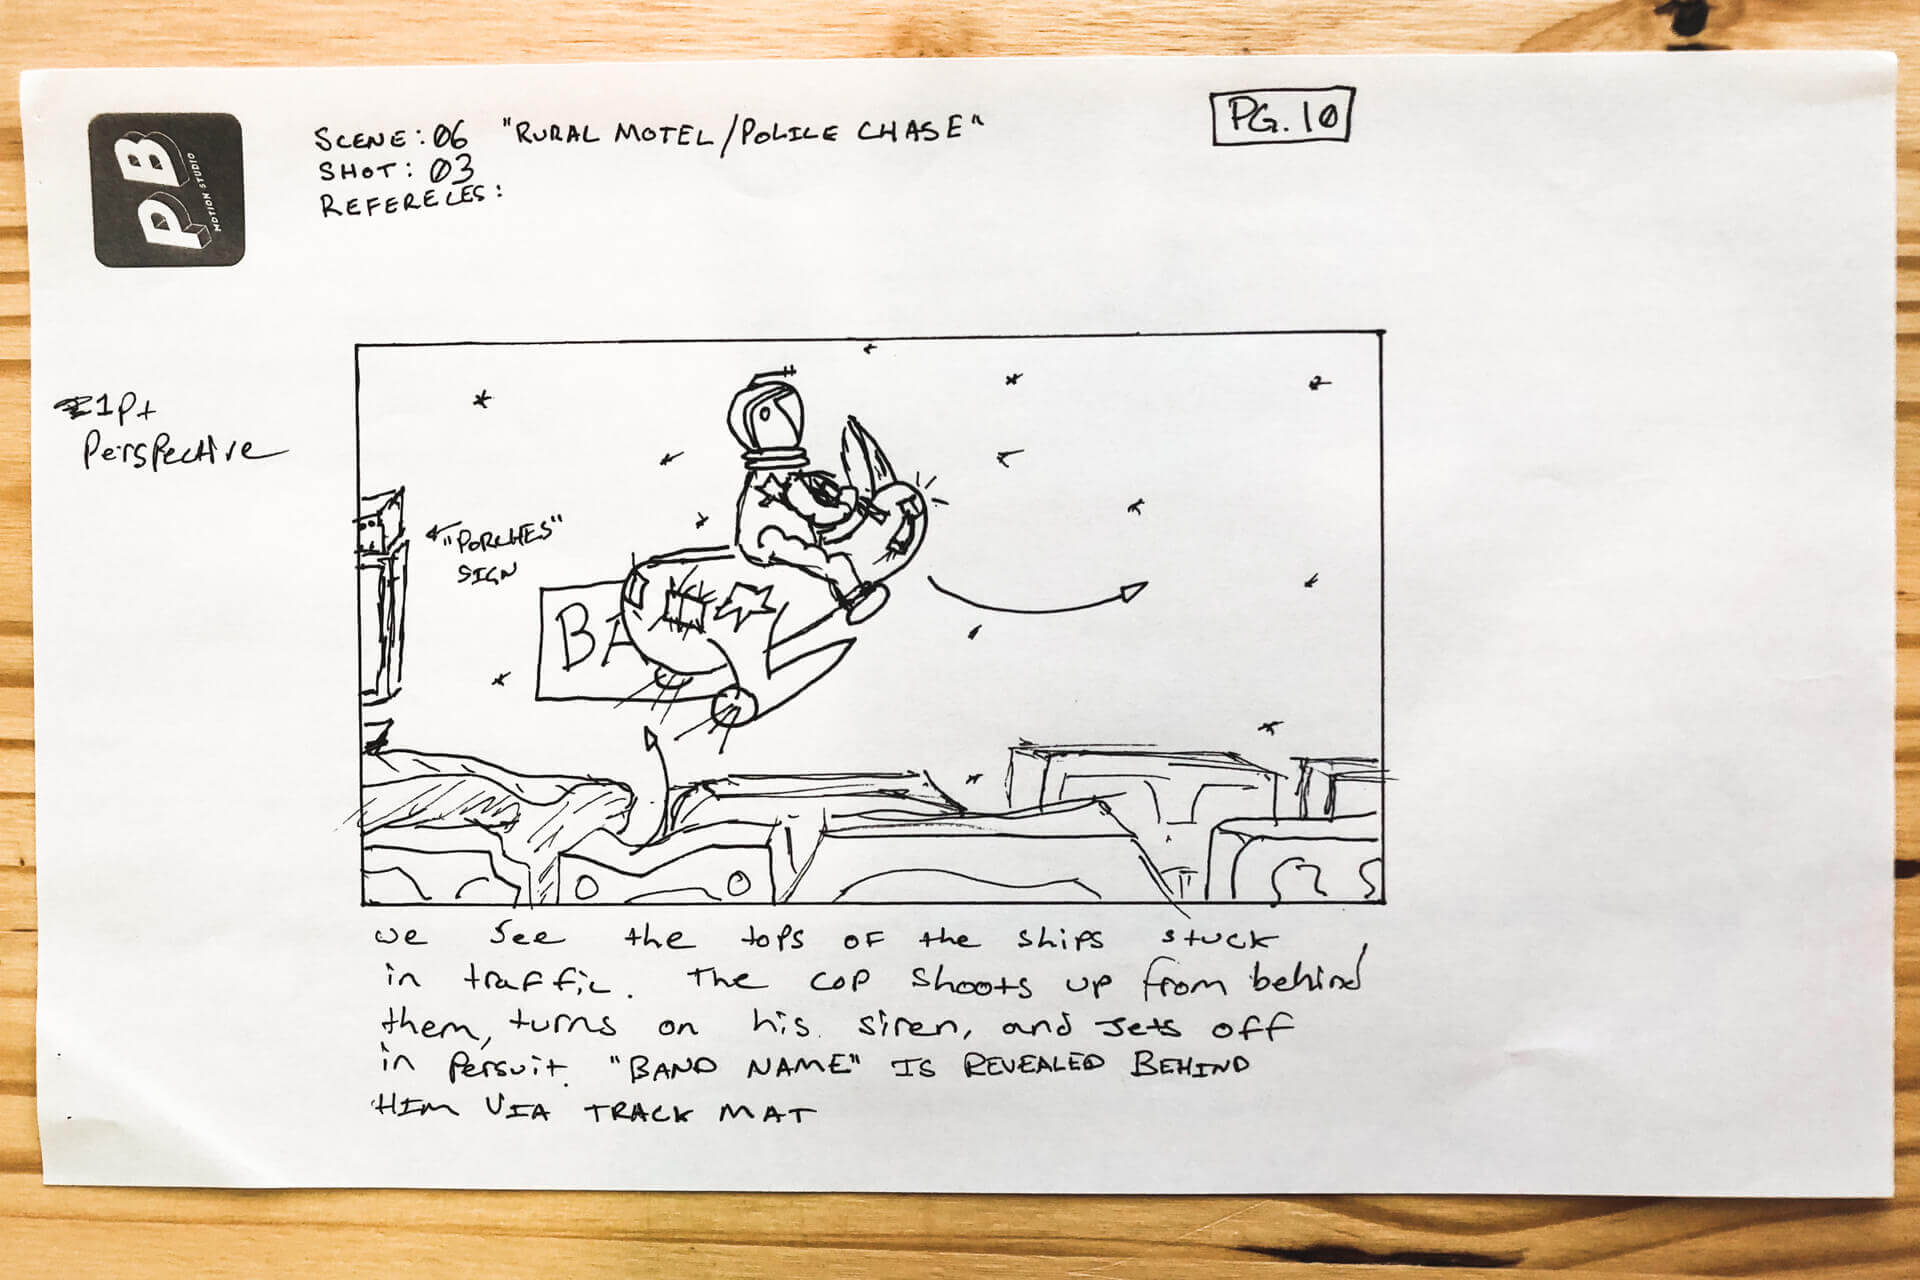 PB
MOTION STUDIO
SCENE: 06 "RURAL MOTEL/POLICE CHASE"
SHOT: 03
REFERECES:
PG. 10
1pt
Perspective
"PORCHES"
SIGN
BA
we see the tops of the ships stuck
in traffic. The cop shoots up from behind
them, turns on his siren, and jets off
in persuit. "BAND NAME" IS REVEALED BEHIND
HIM VIA TRACK MAT